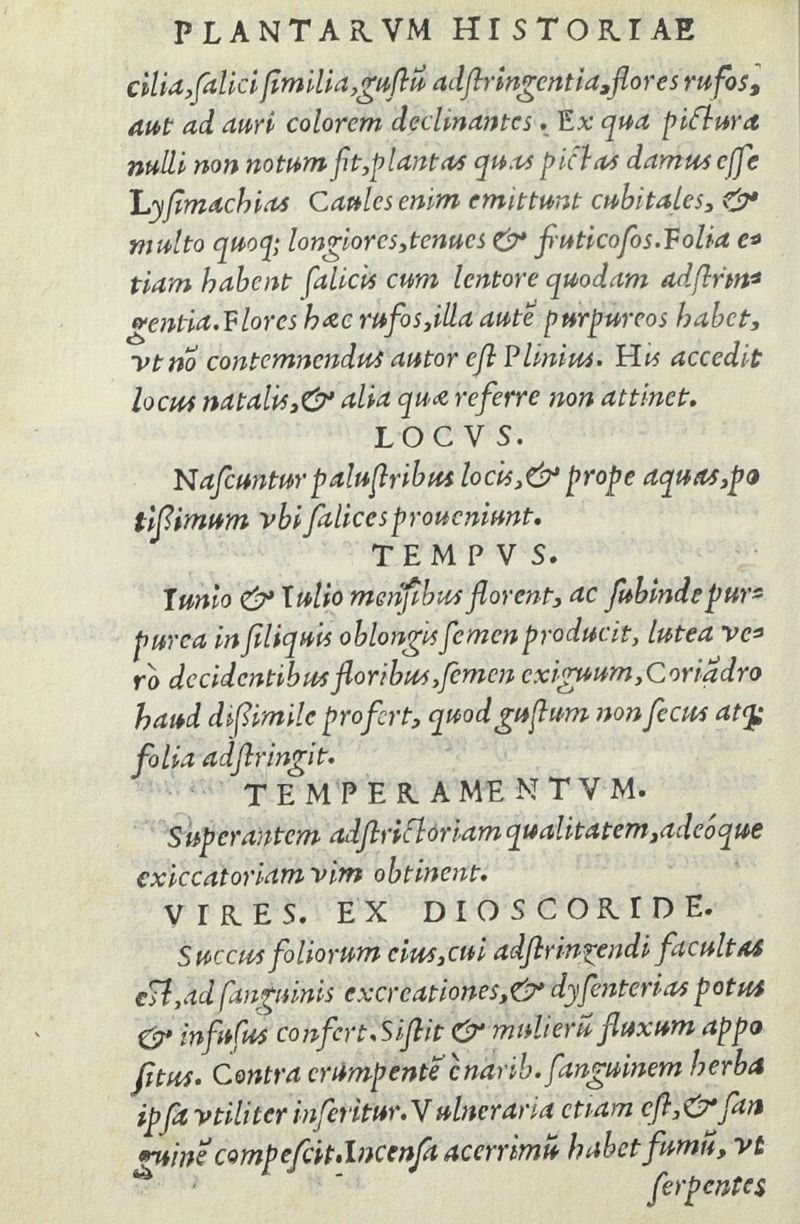 PLANTARVM HISTORIAE
cilia,ſalici ſimilia,guſtũ adſtringentia,flores rufos,
aut ad auri colorem declinantes. Ex qua pictura
nulli non notum ſit,plantas quas pictas damus eſſe
Lyſimachias Caules enim emittunt cubitales, &
multo quoq; longiores,tenues & fruticoſos.Folia e-
tiam habent ſalicis cum lentore quodam adſtrin-
gentia.Flores hæc rufos,illa autẽ purpureos habet,
vt nõ contemnendus autor eſt Plinius. His accedit
locus natalis,& alia quæ referre non attinet.
LOCVS.
Naſcuntur paluſtribus locis,& prope aquas,po
tißimum vbi ſalices proueniunt.
TEMPVS.
Iunio & Iulio menſibus florent, ac ſubinde pur-
purea in ſiliquis oblongis ſemen producit, lutea ve-
rò decidentibus floribus,ſemen exiguum,Coriãdro
haud dißimile profert, quod guſtum non ſecus atq;
folia adſtringit.
TEMPERAMENTVM.
Superantem adſtrictoriam qualitatem,adeóque
exiccatoriam vim obtinent.
VIRES. EX DIOSCORIDE.
Succus foliorum eius,cui adſtringendi facultas
eſt,ad ſanguinis excreationes,& dyſenterias potus
& infuſus confert.Siſtit & mulierũ fluxum appo
ſitus. Contra erumpentẽ è narib. ſanguinem herba
ipſa vtiliter inſeritur.Vulneraria etiam eſt,& ſan
guinẽ compeſcit.Incenſa acerrimũ habet fumũ, vt
ſerpentes